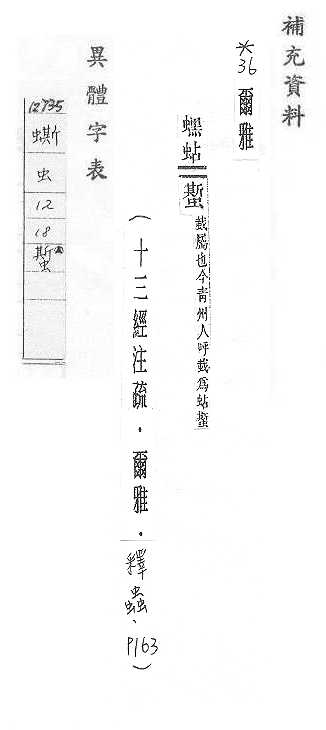 補充資料
*36 爾雅
蟔蛅蟴 蛓屬也今青州人呼蛓為蛅蟴
(十三經注疏.爾雅.釋蟲、P163)
異體字表
12735
蟖
虫
12
18
蟴